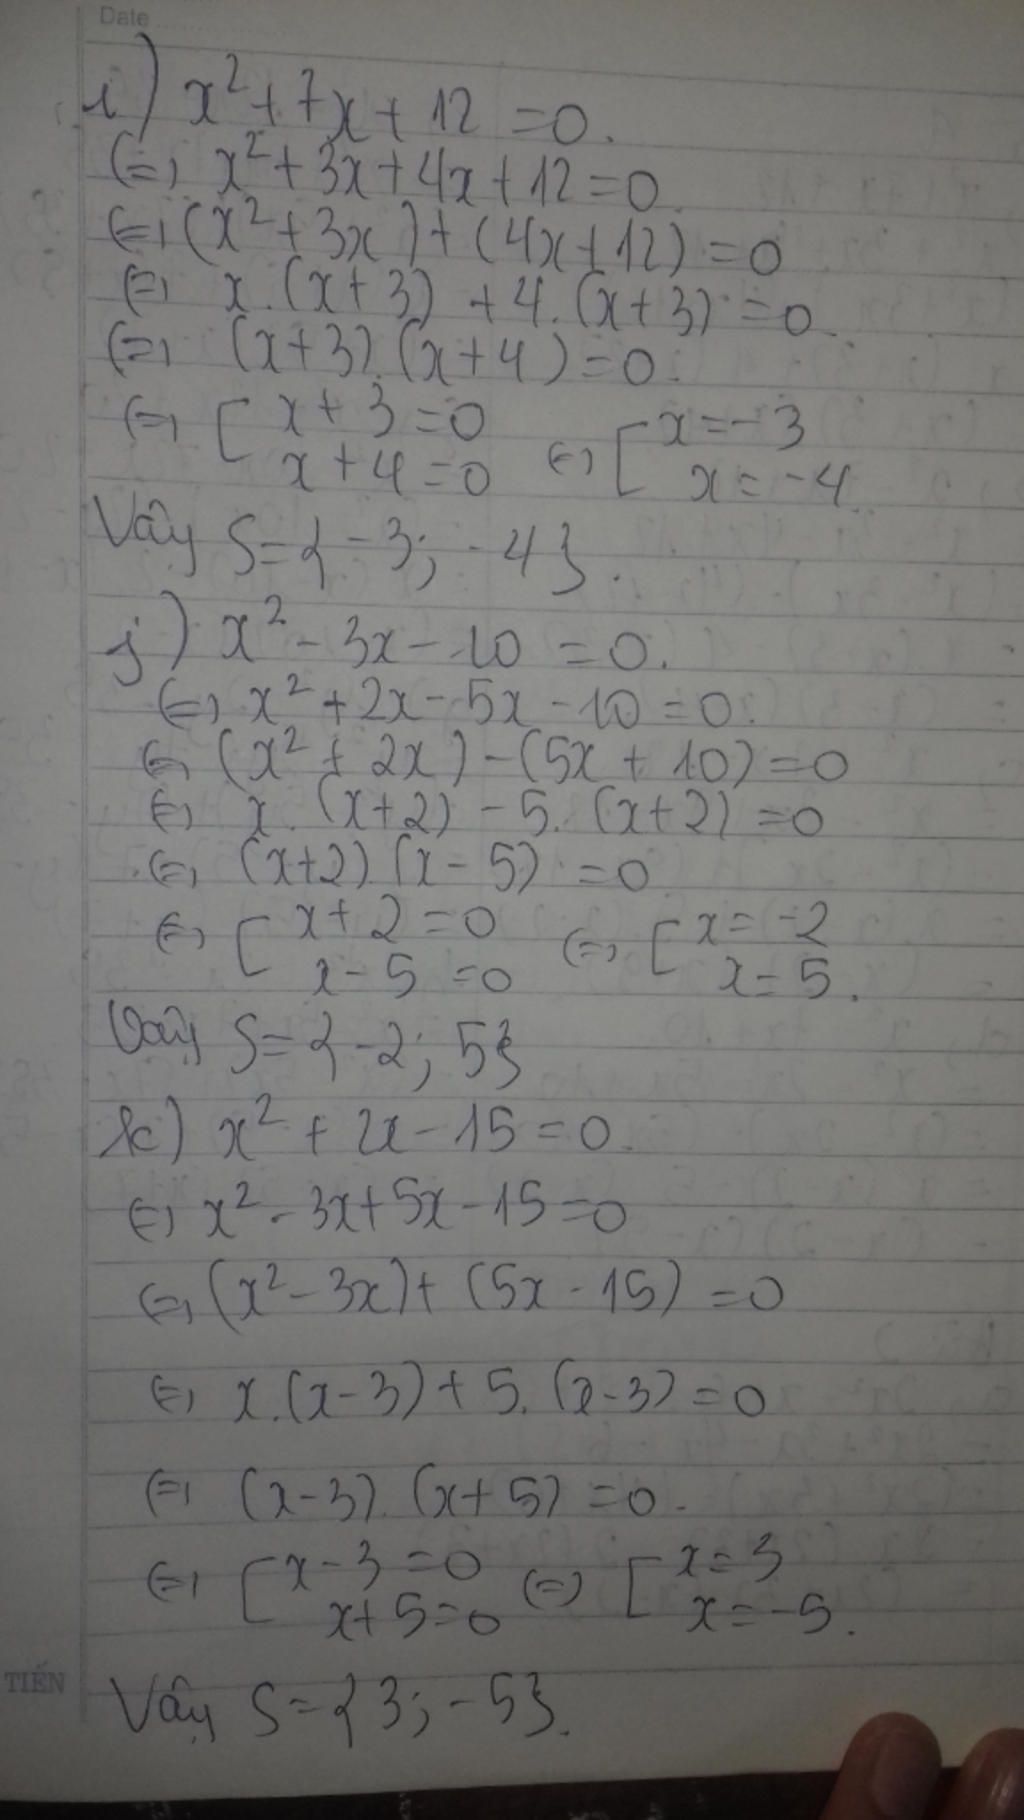 Date
i) x² + 7x + 12 = 0.
(=) x² + 3x + 4x + 12 = 0
(=) (x² + 3x) + (4x + 12) = 0
(=) x.(x + 3) + 4.(x + 3) = 0
(=) (x + 3).(x + 4) = 0.
(=) [ x + 3 = 0 (=) [ x = -3
x + 4 = 0 x = -4
Vậy S = { -3; -4 }.
j) x² - 3x - 10 = 0.
(=) x² + 2x - 5x - 10 = 0.
(=) (x² + 2x) - (5x + 10) = 0
(=) x.(x + 2) - 5.(x + 2) = 0
(=) (x + 2).(x - 5) = 0
(=) [ x + 2 = 0 (=) [ x = -2
x - 5 = 0 x = 5.
Vậy S = { -2; 5 }
k) x² + 2x - 15 = 0.
(=) x² - 3x + 5x - 15 = 0
(=) (x² - 3x) + (5x - 15) = 0
(=) x.(x - 3) + 5.(x - 3) = 0
(=) (x - 3).(x + 5) = 0.
(=) [ x - 3 = 0 (=) [ x = 3
x + 5 = 0 x = -5.
TIẾN
Vậy S = { 3; -5 }.